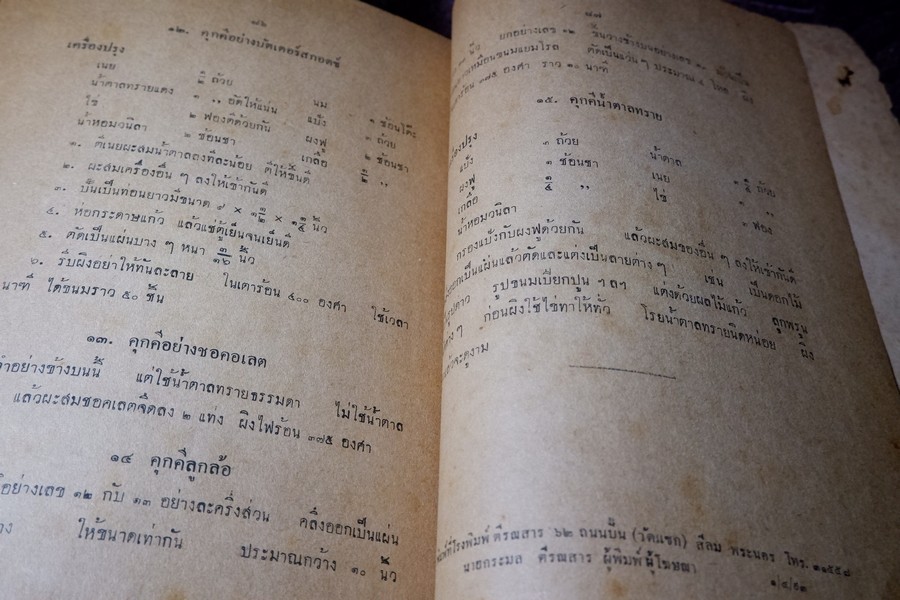 ๘๖
๑๒. คุกคีอย่างบัตเตอร์สกอตช์
เครื่องปรุง
เนย ถ้วย นม ๑ ช้อนโต๊ะ
น้ำตาลทรายแดง ๑ ,, อัดให้แน่น แป้ง ๓ ถ้วย
ไข่ ๒ ฟองตีด้วยกัน ผงฟู ๒ ช้อนชา
น้ำหอมวนิลา ๒ ช้อนชา เกลือ ,,
๑. ตีเนยผะสมน้ำตาลลงทีละน้อย ตีให้ขึ้นดี
๒. ผะสมเครื่องอื่น ๆ ลงให้เข้ากันดี
๓. ปั้นเป็นท่อนยาวมีขนาด นิ้ว
๔. ห่อกระดาษแก้ว แล้วแช่ตู้เย็นจนเย็นดี
๕. ตัดเป็นแผ่นบาง ๆ หนา นิ้ว
๖. รีบผิงอย่าให้ทันละลาย ในเตาร้อน ๔๐๐ องศา ใช้เวลา
นาที ได้ขนมราว ๕๐ ชิ้น
๑๓. คุกคีอย่างชอคอเลต
ทำอย่างข้างบนนี้ แต่ใช้น้ำตาลทรายธรรมดา ไม่ใช้น้ำตาล
แล้วผะสมชอคเลตจืดลง ๒ แท่ง ผิงไฟร้อน ๓๗๕ องศา
๑๔ คุกคีลูกล้อ
อย่างเลข ๑๒ กับ ๑๓ อย่างละครึ่งส่วน คลึงออกเป็นแผ่น
ให้ขนาดเท่ากัน ประมาณกว้าง ๑๐ นิ้ว
๘๗
นิ้ว ยกอย่างเลข ๑๒ ขึ้นวางข้างบนอย่างเลข
เหมือนขนมแยมโรล ตัดเป็นแว่น ๆ ประมาณ ผิง
ร้อน ๓๗๕ องศา ราว ๑๐ นาที
๑๕. คุกคีน้ำตาลทราย
แป้ง ๓ ถ้วย น้ำตาล ถ้วย
ผงฟู ๑ ช้อนชา เนย ๑ ,,
เกลือ ,, ไข่ ๒ ฟอง
น้ำหอมวนิลา
กรองแป้งกับผงฟูด้วยกัน แล้วผะสมของอื่น ๆ ลงให้เข้ากันดี
ออกเป็นแผ่นแล้วตัดและแต่งเป็นลายต่าง ๆ เช่น เป็นดอกไม้
รูปดาว รูปขนมเปียกปูน ๆ ลฯ แต่งด้วยผลไม้แก้ว ลูกพรูน
ต่าง ๆ ก่อนผิงใช้ไข่ทาให้ทั่ว โรยน้ำตาลทรายนิดหน่อย ผิง
แล้วจะดูงาม
พิมพ์ที่โรงพิมพ์ ตีรณสาร ๖๒ ถนนปั้น (วัดแขก) สีลม พระนคร โทร. ๓๑๕๕๘
นายกระมล ตีรณสาร ผู้พิมพ์ ผู้โฆษณา